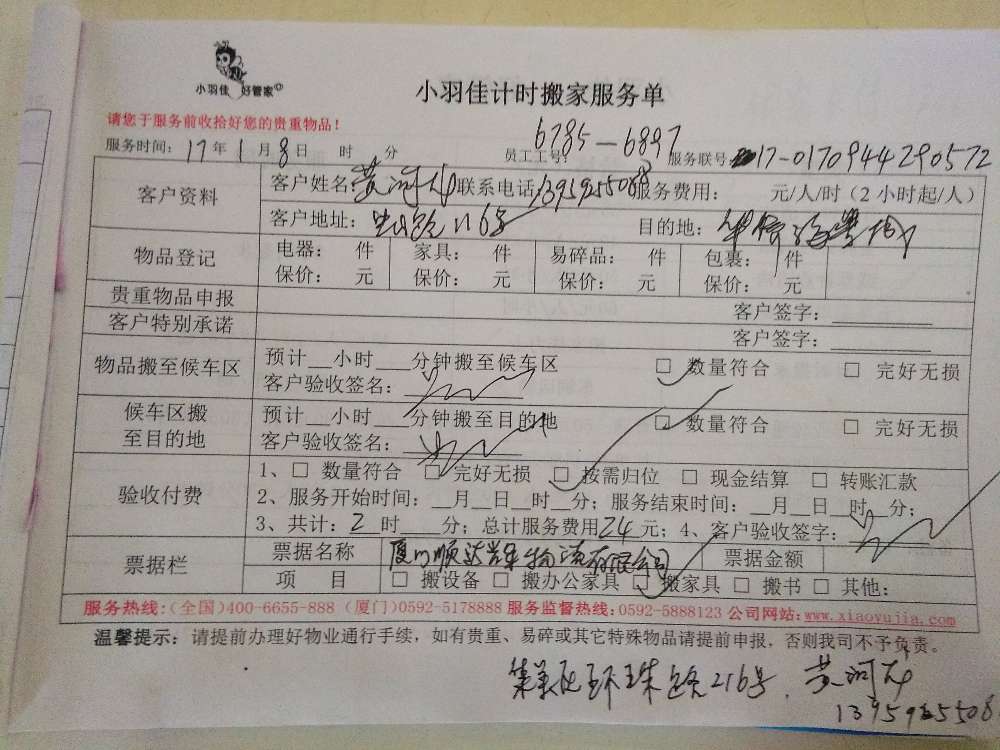 小羽佳 好管家
小羽佳计时搬家服务单
请您于服务前收拾好您的贵重物品！
服务时间： 17年 1月 8日 时 分 员工工号： 6785-6897 服务联号 17-0170944290572
客户资料 客户姓名： 黄河 联系电话： 服务费用： 元/人/时（2小时起/人）
客户地址： 116号 目的地：
物品登记 电器： 件 家具： 件 易碎品： 件 包裹： 件
保价： 元 保价： 元 保价： 元 保价： 元
贵重物品申报 客户签字：
客户特别承诺 客户签字：
物品搬至候车区 预计__小时___分钟搬至候车区 □ 数量符合 □ 完好无损
客户验收签名：
候车区搬至目的地 预计__小时___分钟搬至目的地 □ 数量符合 □ 完好无损
客户验收签名：
验收付费 1、□ 数量符合 □ 完好无损 □ 按需归位 □ 现金结算 □ 转账汇款
2、服务开始时间：__月__日__时__分；服务结束时间：__月__日__时__分；
3、共计：2 时___分；总计服务费用24元；4、客户验收签字：
票据栏 票据名称 厦门顺达 物流有限公司 票据金额
项 目 □ 搬设备 □ 搬办公家具 □ 搬家具 □ 搬书 □ 其他：
服务热线：（全国）400-6655-888（厦门）0592-5178888 服务监督热线：0592-5888123 公司网站：www.xiaoyujia.com
温馨提示：请提前办理好物业通行手续，如有贵重、易碎或其它特殊物品请提前申报，否则我司不予负责。
集美区环珠路216号. 黄河